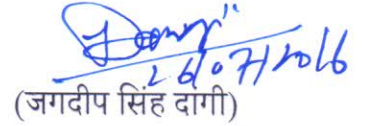 26/07/2016
(जगदीप सिंह दागी)